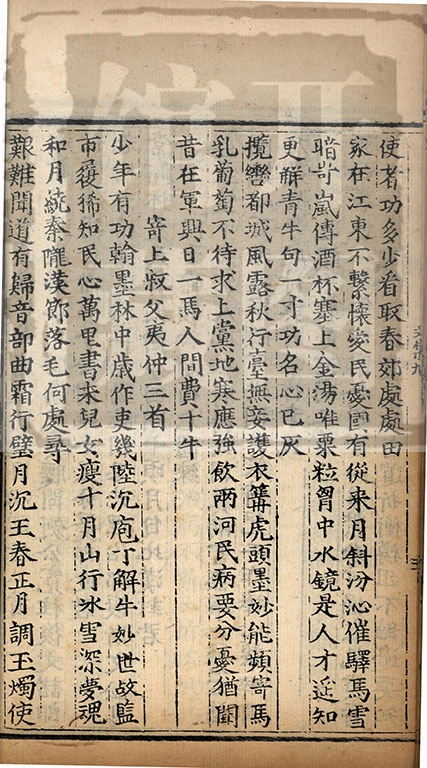 使者功多少看取春郊處處田
家在江東不繫懷愛民憂國有從来月斜汾沁催驛馬雪
暗岢嵐傳酒杯塞上金湯唯粟粒胷中水鏡是人才遥知
更解青牛句一寸功名心已灰
攬轡都城風露秋行臺無妾護衣篝虎頭墨妙能頻寄馬
乳葡萄不待求上黨地寒應強飲兩河民病要分憂猶聞
昔在軍興日一馬人間費十牛
寄上叔父夷仲三首
少年有功翰墨林中歳作吏幾陸沉庖丁解牛妙世故監
市履狶知民心萬里書来兒女瘦十月山行冰雪深夢魂
和月繞秦隴漢節落毛何處尋
艱難聞道有歸音部曲霜行璧月沉王春正月調玉燭使